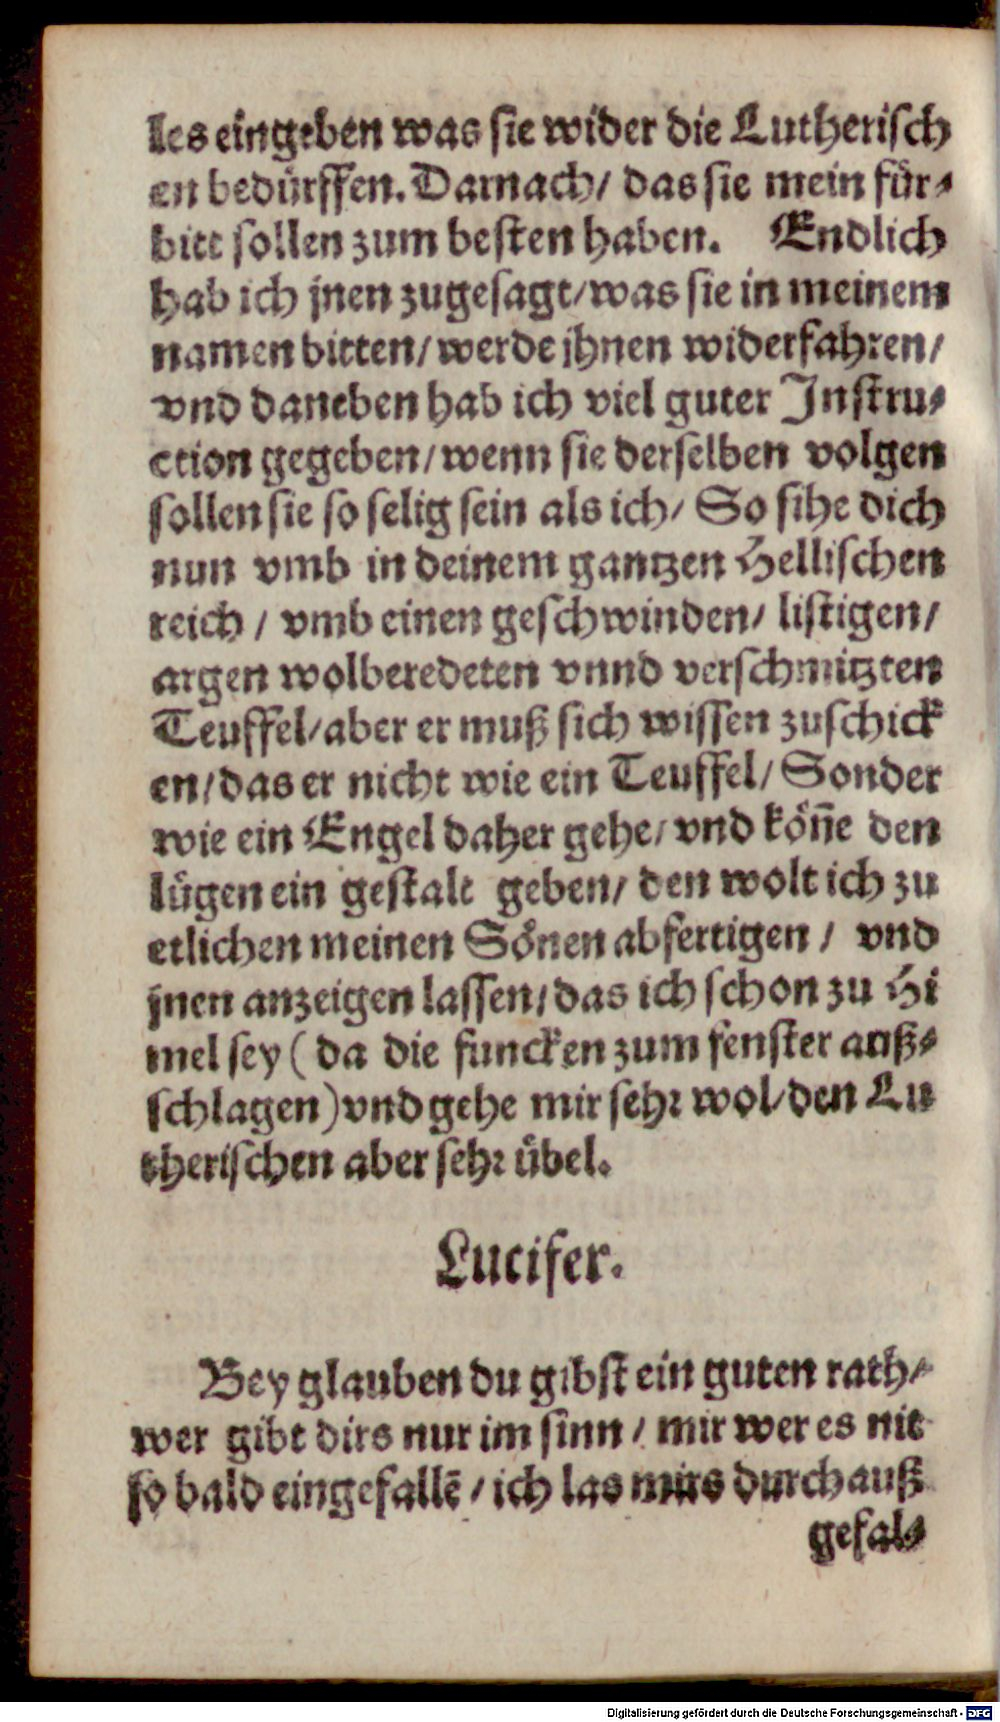 les eingeben was sie wider die Lutherisch
en bedürffen. Darnach/ das sie mein für⸗
bitt sollen zum besten haben. Endlich
hab ich jnen zugesagt/ was sie in meinem
namen bitten/ werde jhnen widerfahren/
vnd daneben hab ich viel guter Instru⸗
ction gegeben/ wenn sie derselben volgen
sollen sie so selig sein als ich/ So sihe dich
nun vmb in deinem gantzen Hellischen
reich / vmb einen geschwinden/ listigen/
argen wolberedeten vnnd verschmitzten
Teuffel/ aber er muß sich wissen zuschick
en/ das er nicht wie ein Teuffel/ Sonder
wie ein Engel daher gehe/ vnd köñe den
lügen ein gestalt geben/ den wolt ich zu
etlichen meinen Sönen abfertigen / vnd
jnen anzeigen lassen/ das ich schon zu Hi
mel sey ( da die funcken zum fenster auß⸗
schlagen ) vnd gehe mir sehr wol/ den Lu
therischen aber sehr übel.
Lucifer.
Bey glauben du gibst ein guten rath/
wer gibt dirs nur im sinn / mir wer es nit
so bald eingefallē / ich las mirs durch auß
gefal⸗
Digitalisierung gefördert durch die Deutsche Forschungsgemeinschaft - DFG